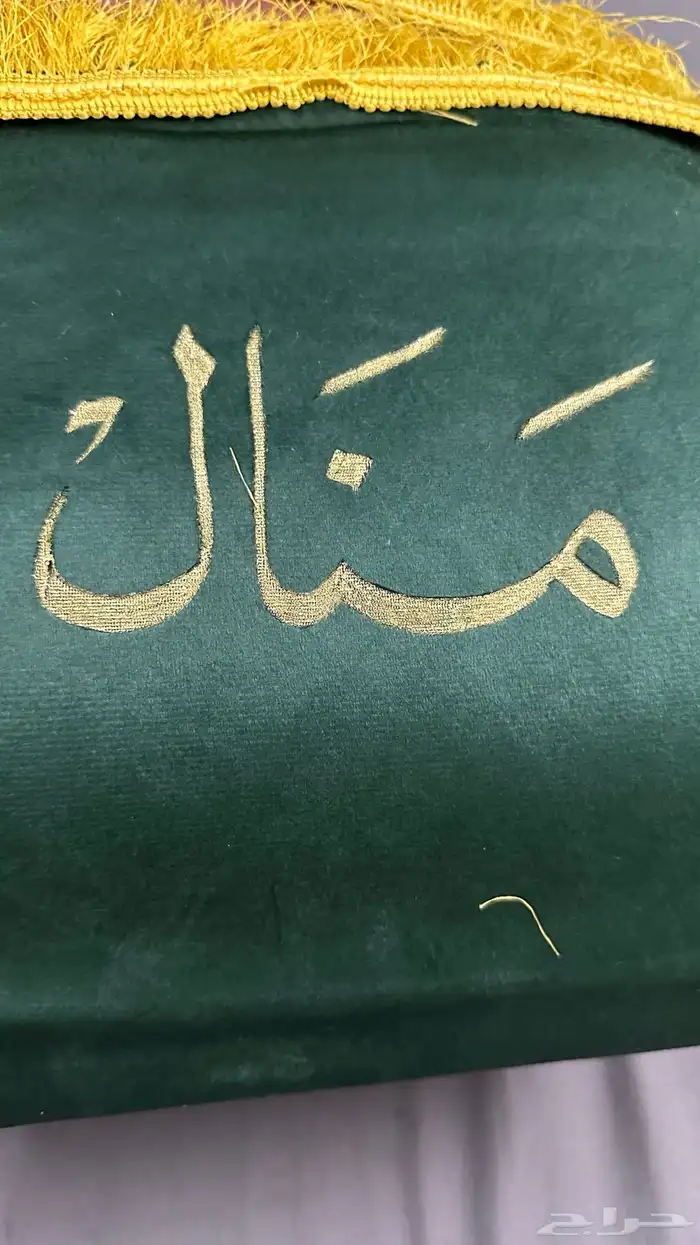 مَنَالُ
حراج